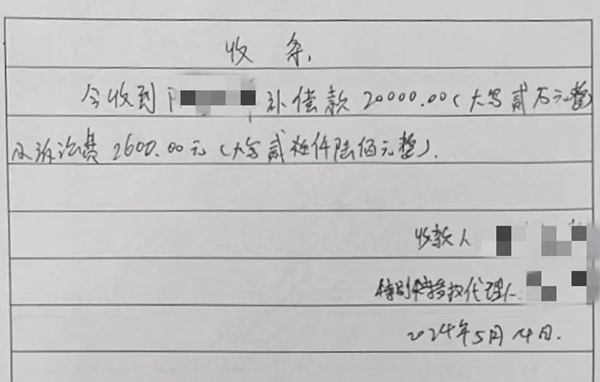 收条
今收到 补偿款 20000.00(大写贰万元整)
及诉讼费 2600.00元(大写贰仟陆佰元整).
收款人
特别授权代理人
2024年5月14日.